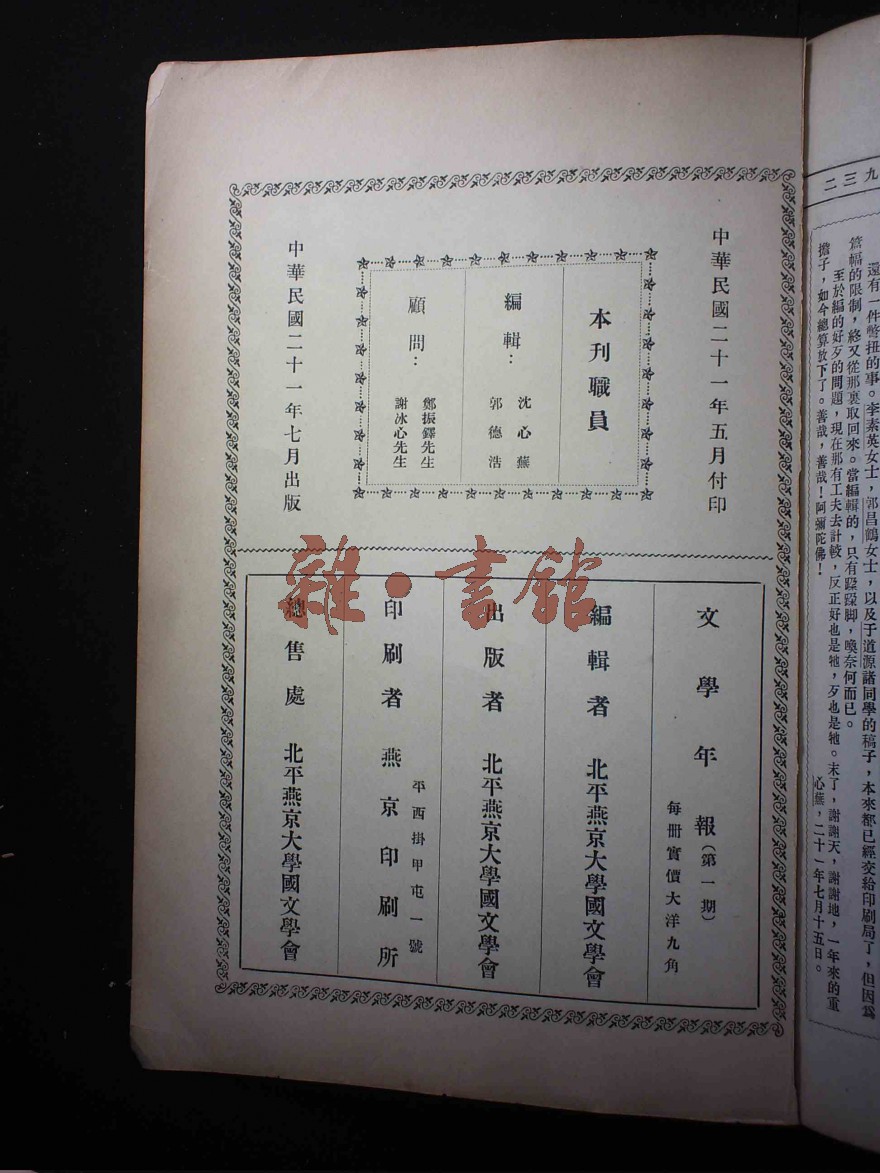 二三九
還有一件彆扭的事。李素英女士，郭昌鶴女士，以及于道源諸同學的稿子，本來都已經交給印刷局了，但因爲
篇幅的限制，終又從那裏取回來。當編輯的，只有跺跺脚，喚奈何而已。
至於編的好歹的問題，現在那有工夫去計較，反正好也是牠，歹也是牠。末了，謝謝天，謝謝地，一年來的重
擔子，如今總算放下了。善哉，善哉！阿彌陀佛！
心蕪，二十一年七月十五日。
中華民國二十一年五月付印
本刊職員
編輯：
沈心蕪
郭德浩
顧問：
鄭振鐸先生
謝冰心先生
中華民國二十一年七月出版
文學年報（第一期）
每冊實價大洋九角
編輯者 北平燕京大學國文學會
出版者 北平燕京大學國文學會
印刷者 燕京印刷所
平西掛甲屯一號
總售處 北平燕京大學國文學會
雜·書館